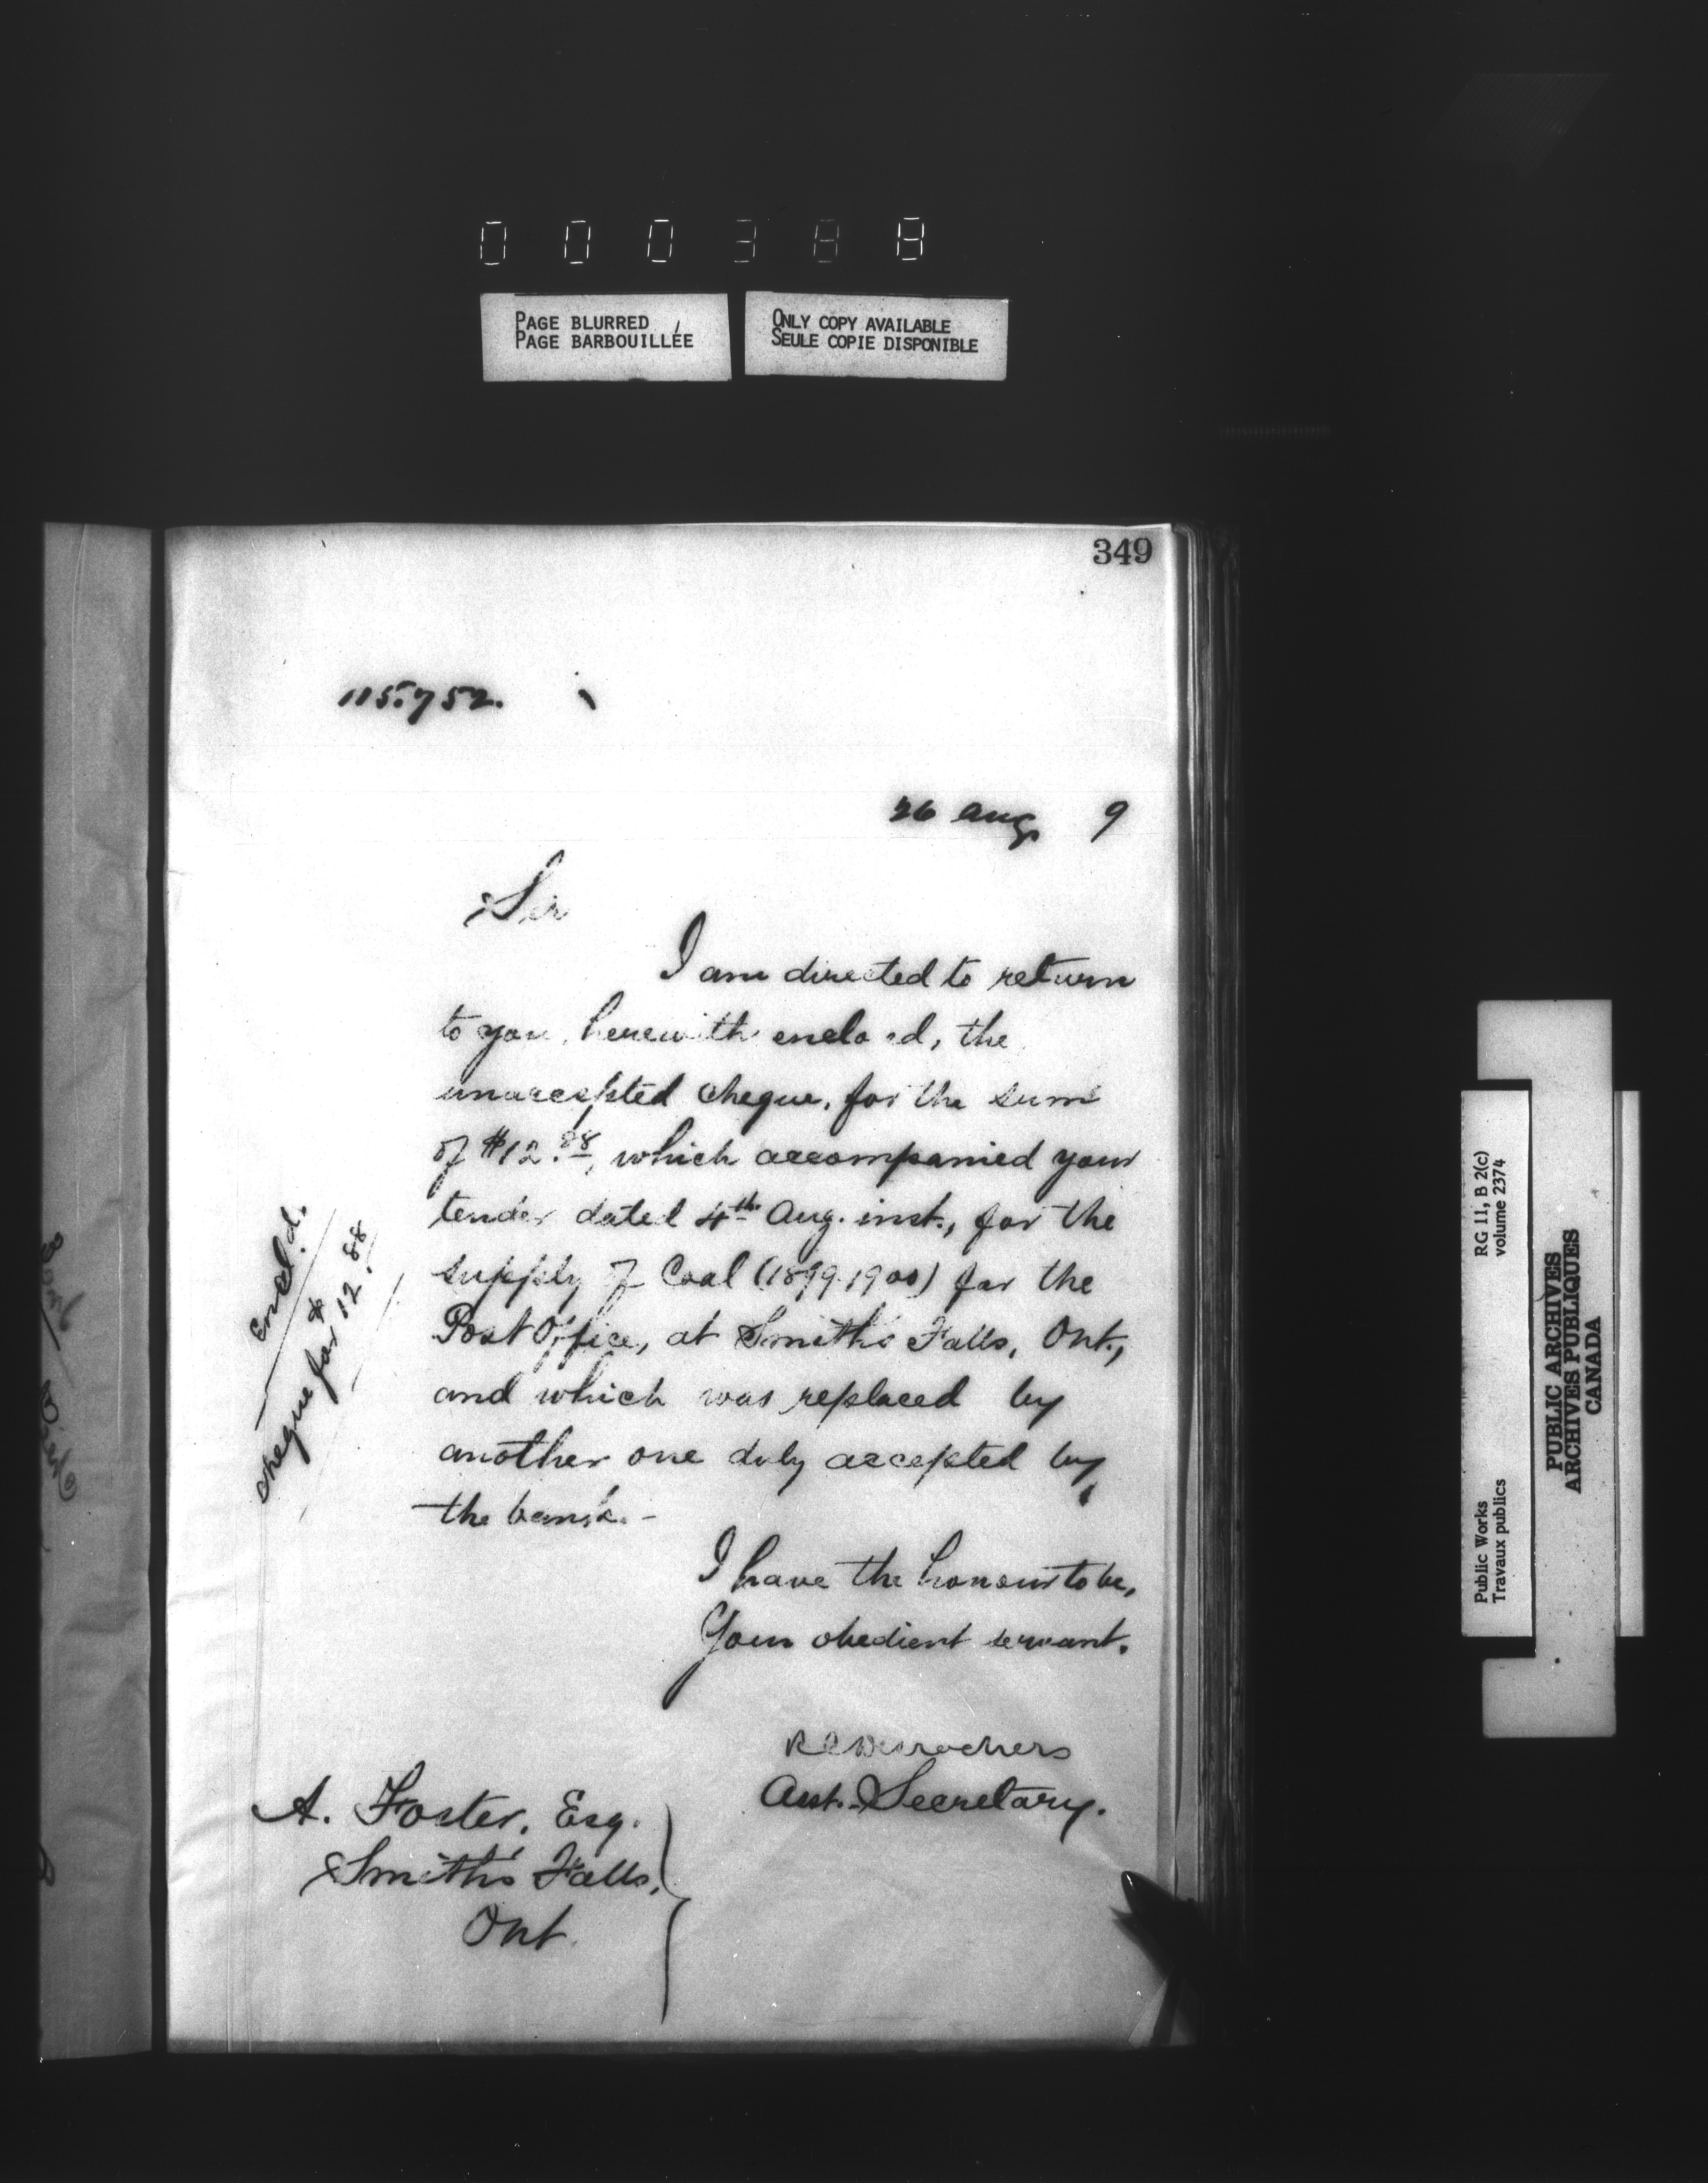 000388
PAGE BLURRED
PAGE BARBOUILLÉE
ONLY COPY AVAILABLE
SEULE COPIE DISPONIBLE
349
115.752.
26 Aug 9
Sir
I am directed to return
to you, herewith enclosed, the
unaccepted cheque, for the sum
of $12.88, which accompanied your
tender dated 4th Aug. inst., for the
supply of Coal (1899-1900) for the
Post Office, at Smith's Falls, Ont.,
and which was replaced by
another one duly accepted by
the bank. -
Encl'd.
cheque for $12.88
I have the honour to be,
Your obedient servant.
R C Desrochers
Asst. Secretary.
A. Foster, Esq.
Smith's Falls,
Ont.
RG 11, B 2(c)
volume 2374
Public Works
Travaux publics
PUBLIC ARCHIVES
ARCHIVES PUBLIQUES
CANADA